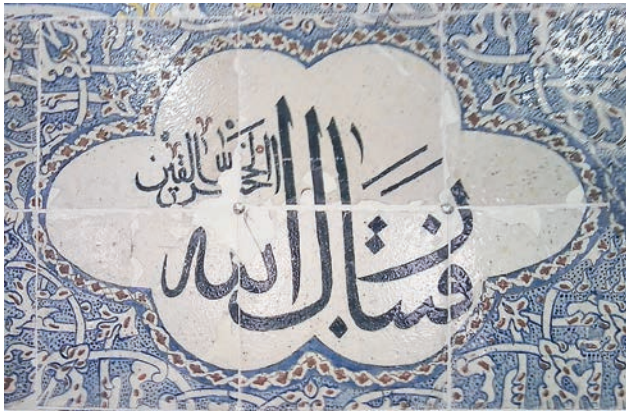 فتبارك الله
احسن الخالقين